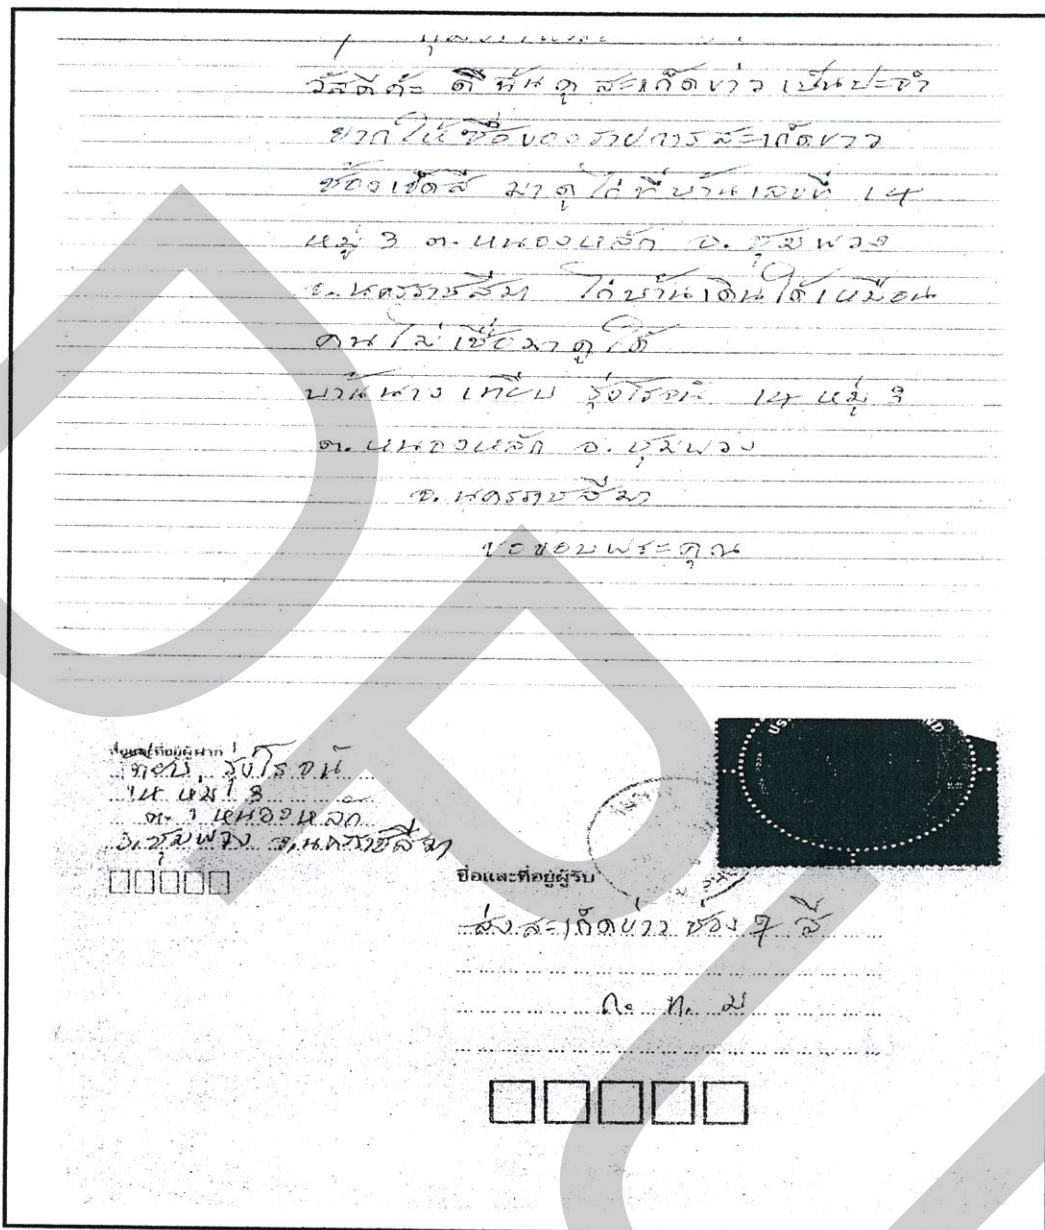 วัสดีค่ะ ดิฉันดูสะเก็ดข่าวเป็นประจำ
ยากให้ชื่อของรายการสะเก็ดขาว
ช้องเช็ดสี มาดูไก่ที่บ้านเลขที่ 14
หมู่ 3 ต. หนองหลัก อ. ชุมพวง
จ. นครราชสีมา ไก่บ้านเดินได้เหมือน
คนไม่เชื่อมาดูได้
บ้านนาง เทียบ รุ่งโรจน์ 14 หมู่ 3
ต. หนองหลัก อ. ชุมพวง
จ. นครราชสีมา
ขอขอบพระคุณ
ชื่อและที่อยู่ผู้ฝาก
เทียบ รุ่งโรจน์
14 หมู่ 3
ต. หนองหลัก
อ. ชุมพวง จ. นครราชสีมา
ชื่อและที่อยู่ผู้รับ
ส่งสะเก็ดข่าว ช่อง 7 สี
ก. ท. ม